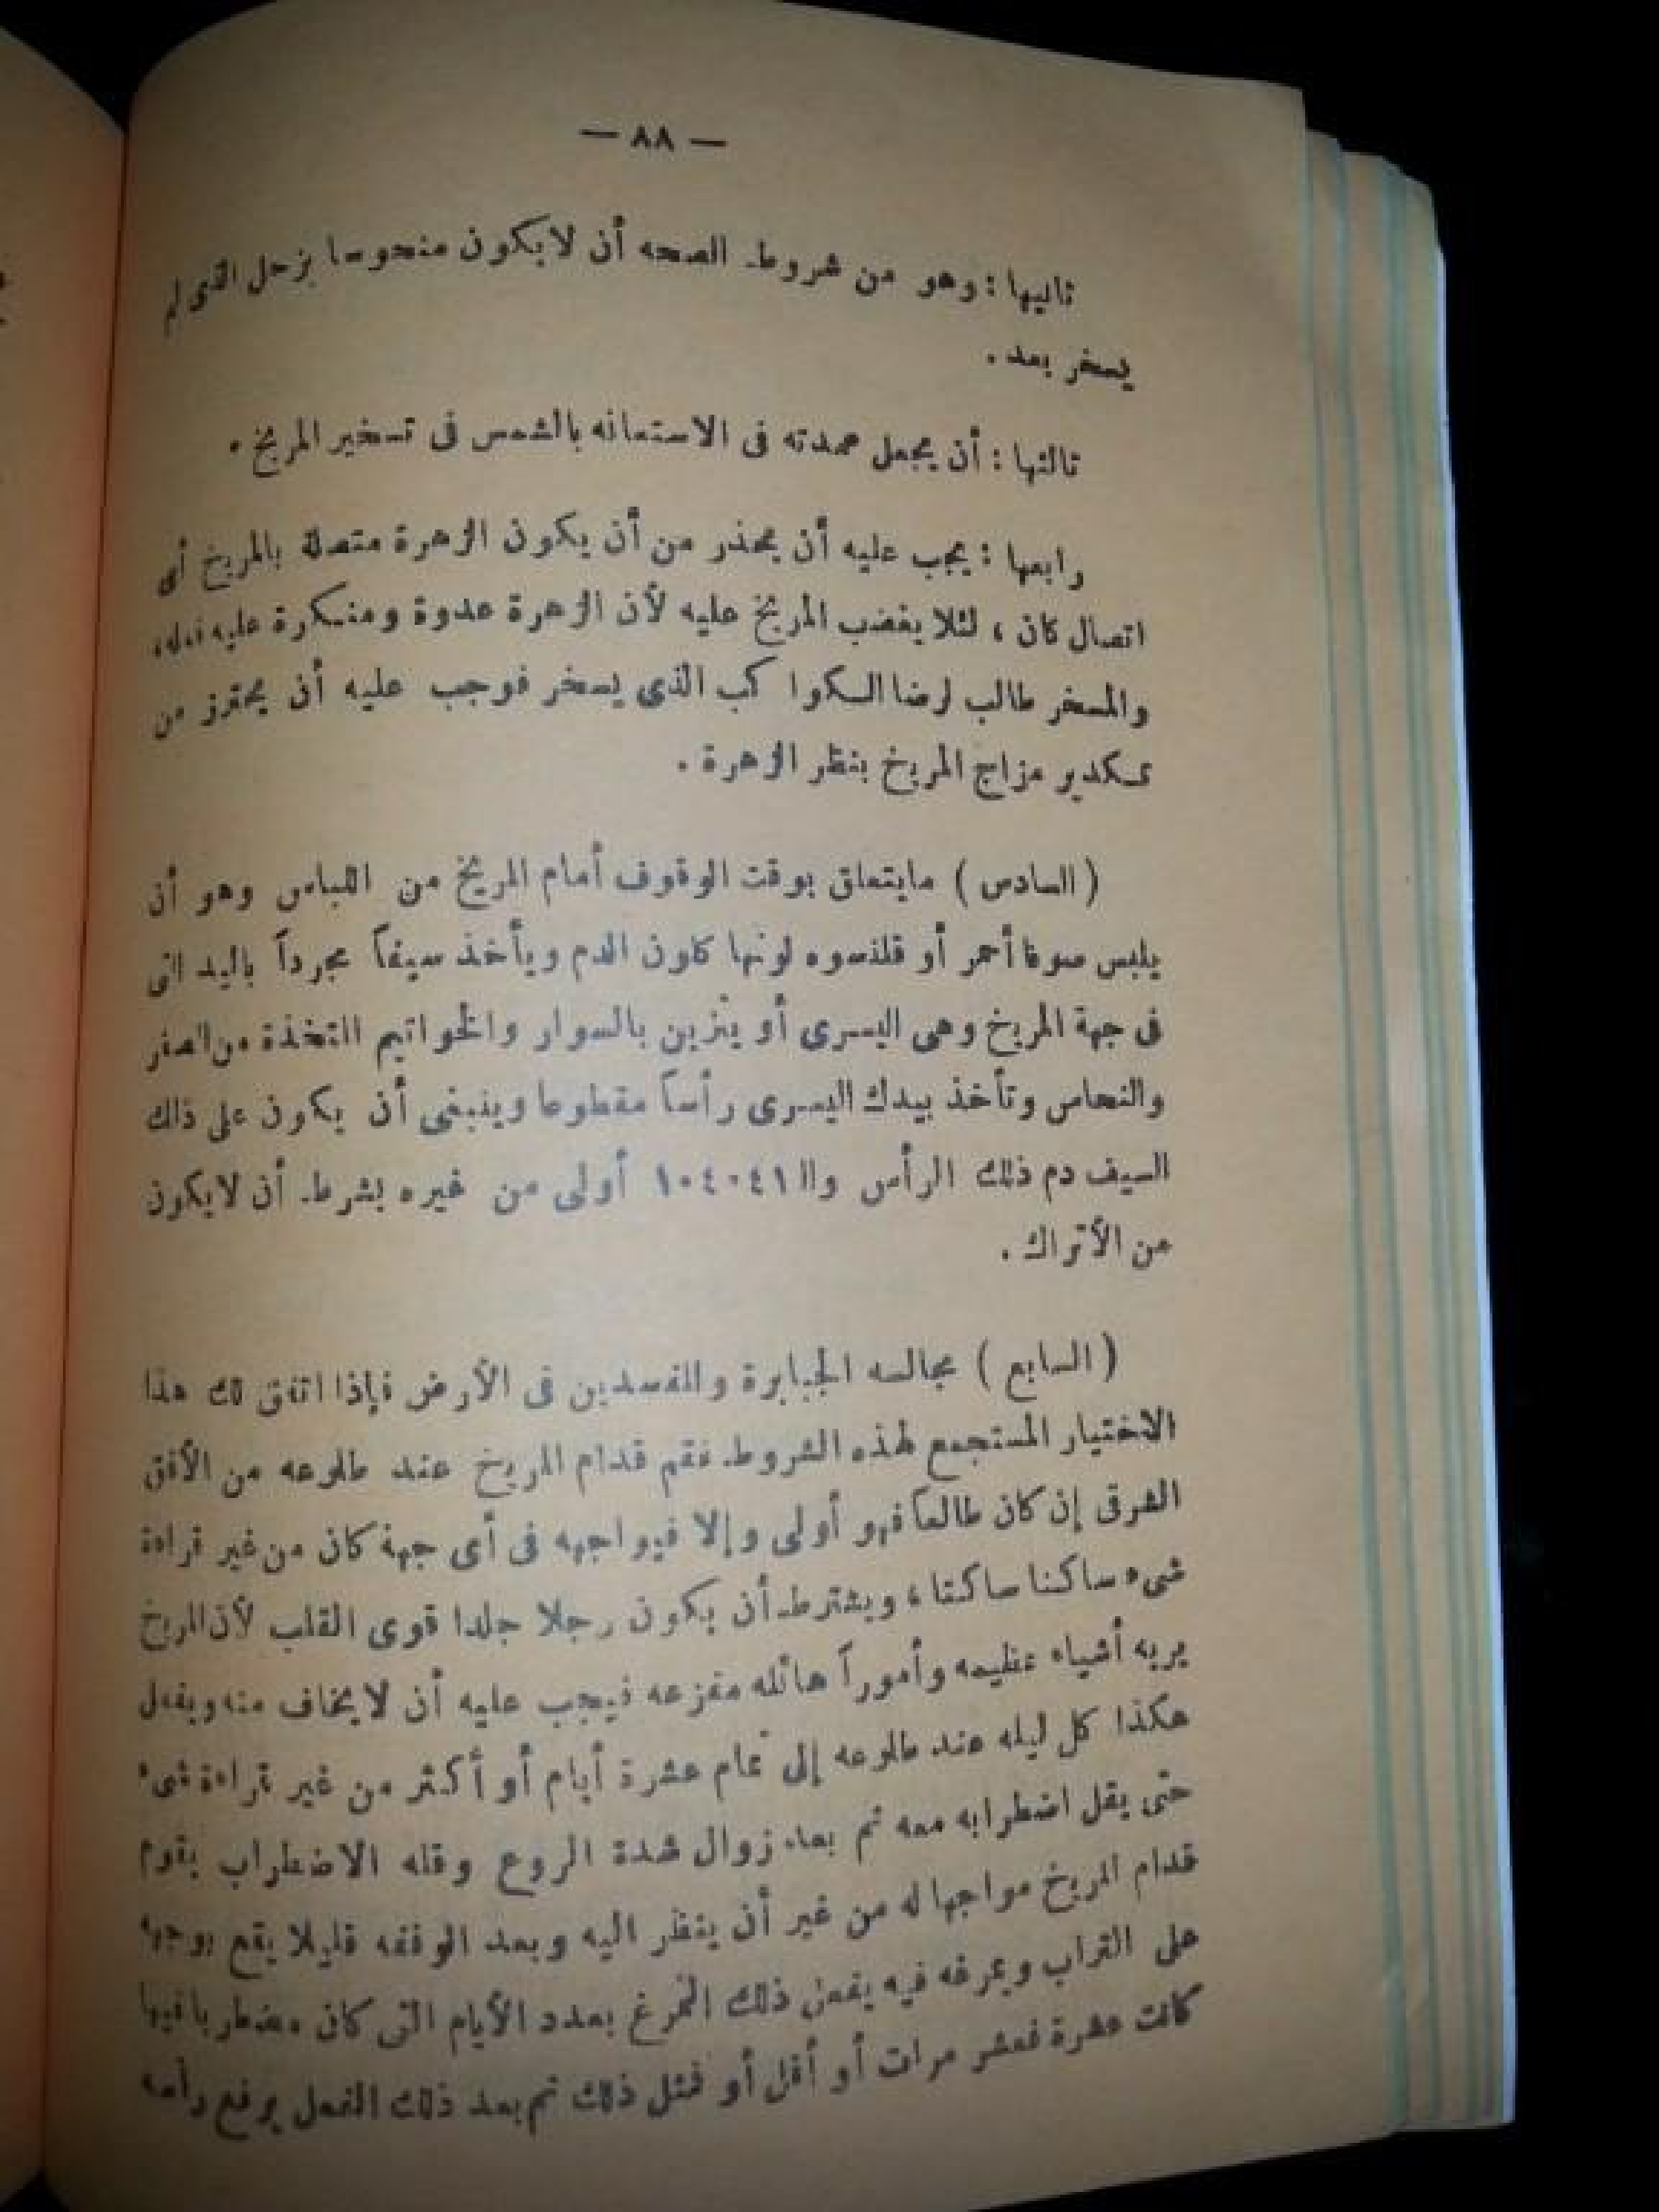 — ٨٨ —
ثانيها : وهو من شروط الصحه أن لايكون منحوسا بزحل الذى لم
يسخر بعد .
ثالثها : أن يجعل عمدته فى الاستعانه بالشمس فى تسخير المريخ .
رابعها : يجب عليه أن يحذر من أن يكون الزهرة متصلة بالمريخ أى
اتصال كان ، لئلا يغضب المريخ عليه لأن الزهرة عدوة ومنكرة عليه فعله،
والمسخر طالب لرضا الكواكب الذى يسخر فوجب عليه أن يحترز من
تكدير مزاج المريخ بنظر الزهرة .
( السادس ) مايتعلق بوقت الوقوف أمام المريخ من اللباس وهو أن
يلبس صوفا أحمر أو قلنسوه لونها كلون الدم ويأخذ سيفاً مجرداً باليد التى
فى جهة المريخ وهى اليسرى أو يتزين بالسوار والخواتيم المتخذة من الصفر
والنحاس وتأخذ بيدك اليسرى رأساً مقطوعا وينبغى أن يكون على ذلك
السيف دم ذلك الرأس والـ ١٠٤٠٤١ أولى من غيره بشرط أن لايكون
من الأتراك .
( السابع ) مجالسه الجبابرة والمفسدين فى الأرض فإذا اتفق لك هذا
الاختيار المستجمع لهذه الشروط فقم قدام المريخ عند طلوعه من الأفق
الشرقى إن كان طالعاً فهو أولى وإلا فيواجهه فى أى جهة كان من غير قراءة
شىء ساكنا ساكتا ، ويشترط أن يكون رجلا جلدا قوى القلب لأن المريخ
يريه أشياء عظيمه وأموراً هائله مفزعه فيجب عليه أن لايخاف منه ويفعل
هكذا كل ليله عند طلوعه إلى تمام عشرة أيام أو أكثر من غير قراءة شىء
حتى يقل اضطرابه معه ثم بعد زوال شدة الروع وقله الاضطراب يقوم
قدام المريخ مواجها له من غير أن ينظر اليه وبعد الوقفه قليلا يقع بوجهه
على التراب ويمرغه فيه يفعل ذلك التمرغ بعدد الأيام التى كان مضطربا فيها
كانت عشرة فعشر مرات أو أقل أو فمثل ذلك ثم بعد ذلك الفعل يرفع رأسه